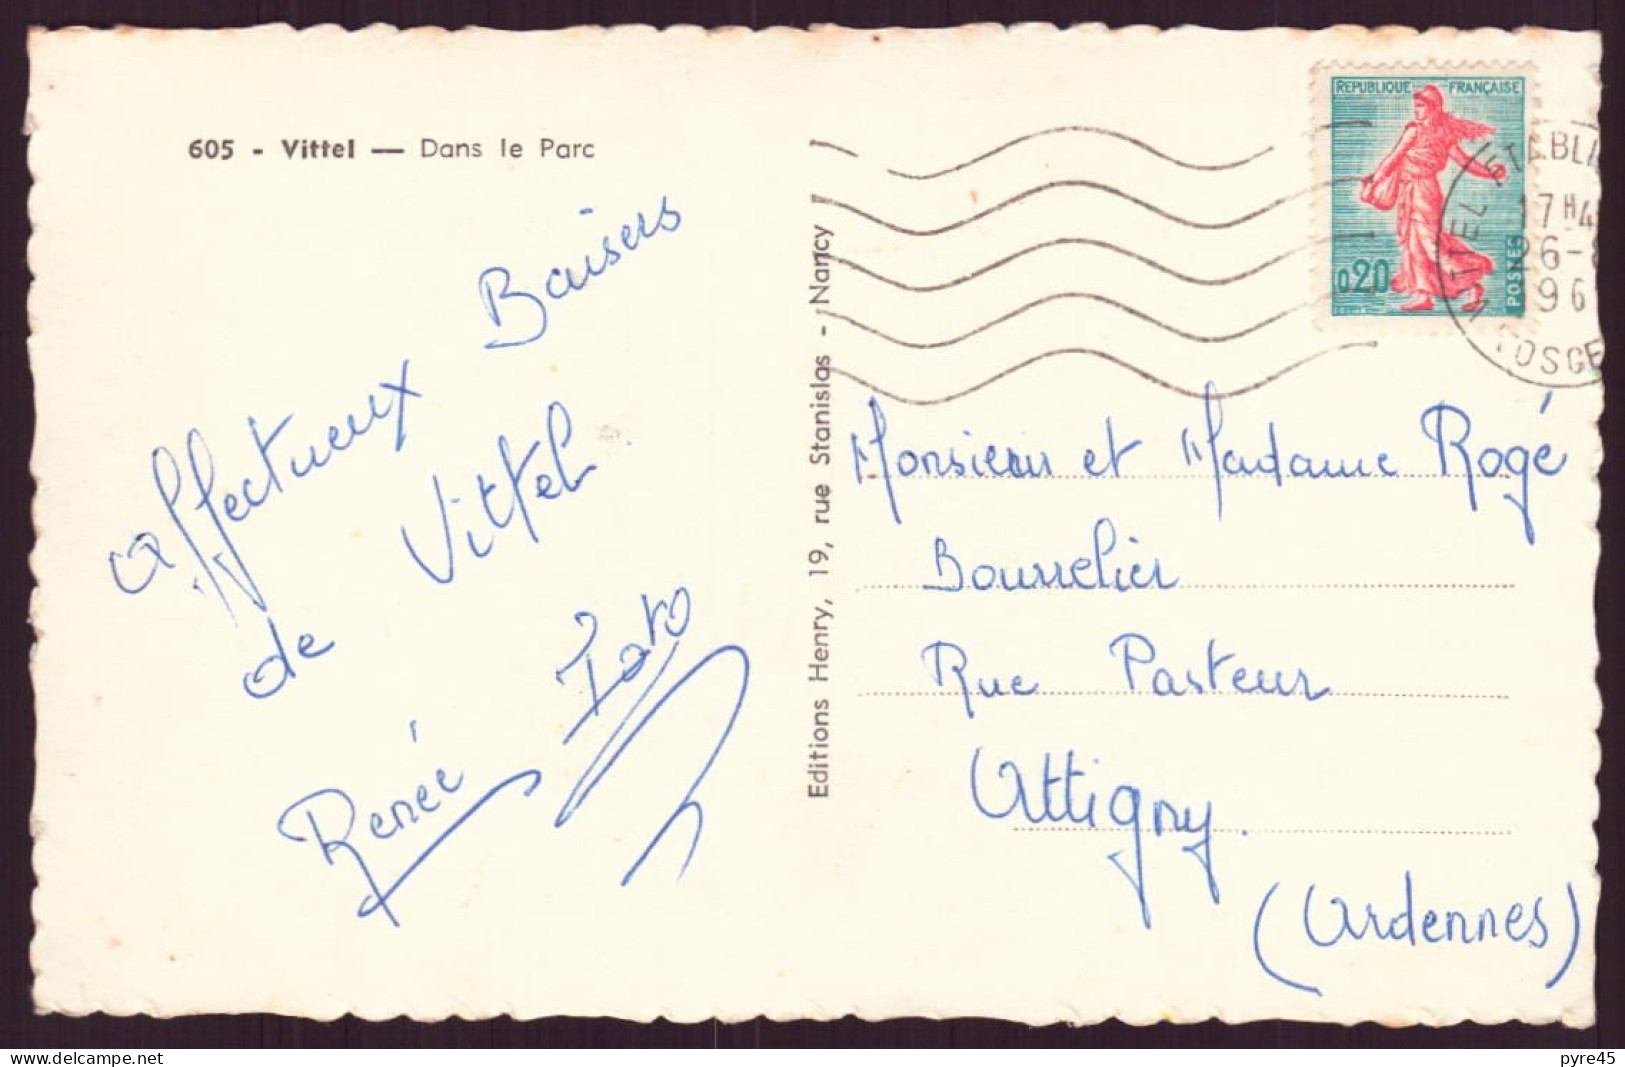 605 - Vittel — Dans le Parc
Affectueux Baisers
de Vittel.
Renée Toto
Editions Henry, 19, rue Stanislas - Nancy
REPUBLIQUE FRANÇAISE
0,20
POSTES
VITTEL ETABLI
17H4
26-8
196
VOSGE
Monsieur et Madame Rogé
Bourrelier
Rue Pasteur
Attigny.
(Ardennes)
www.delcampe.net
pyre45